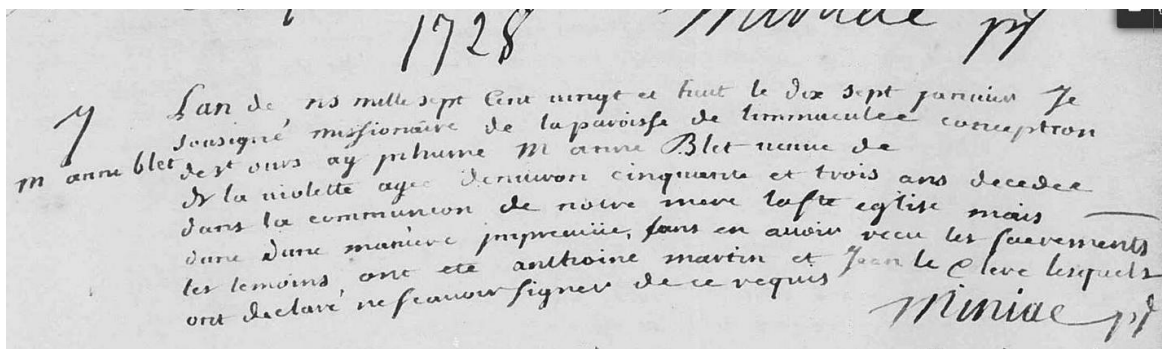 Miniac ptr
1728
7
m anne blet
Lan de ns mille sept Cent vingt et huit le dix sept janvier Je
sousigné missionaire de la paroisse de limmaculée conception
de st ours ay jnhumé M anne Blet veuve de
de la violette agée denviron cinquante et trois ans decedée
dans la communion de notre mere la ste eglise mais
dune dune maniere jmpreuüe, sans en avoir recu les sacrements
les temoins, ont eté anthoine martin et Jean le Clere lesquels
ont declaré ne scavoir signer de ce requis
Miniac ptr